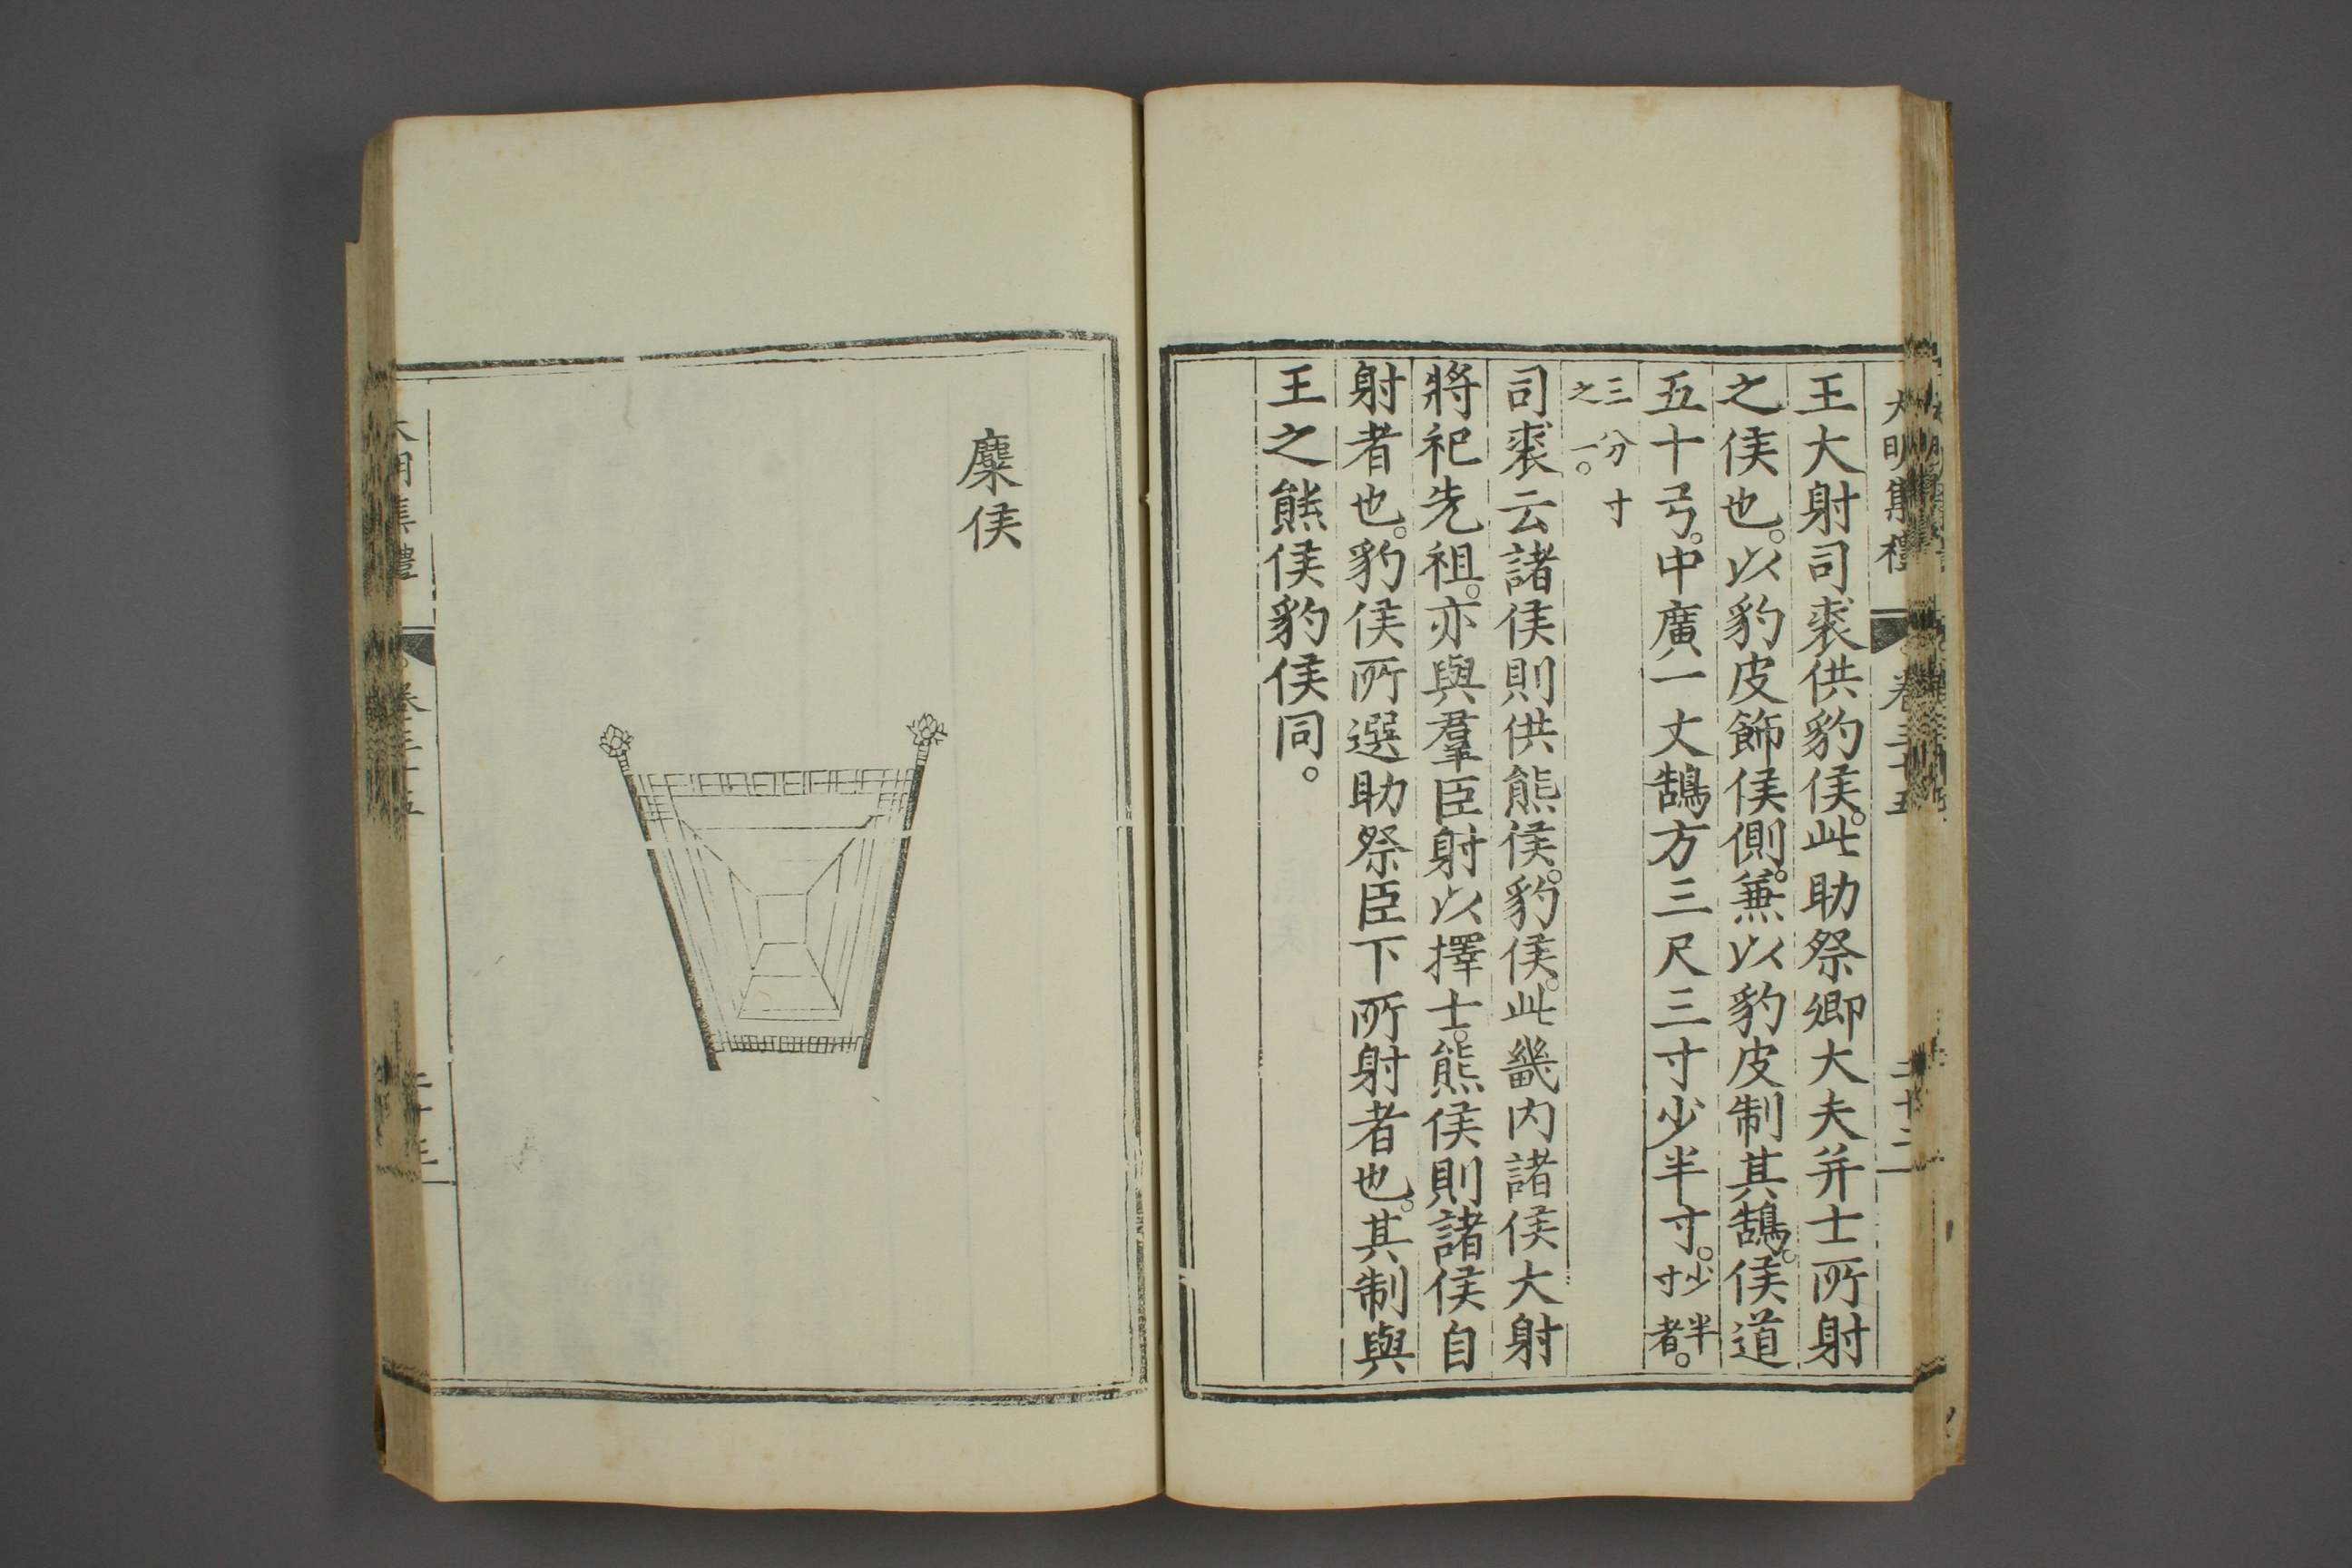 大明集禮 卷三十五 二十二
王大射司裘供豹侯。此助祭卿大夫并士所射
之侯也。以豹皮飾侯側。兼以豹皮制其鵠。侯道
五十弓。中廣一丈鵠方三尺三寸少半寸。少半寸者。
三分寸之一。
司裘云諸侯則供熊侯。豹侯。此畿内諸侯大射
將祀先祖。亦與羣臣射以擇士。熊侯則諸侯自
射者也。豹侯所選助祭臣下所射者也。其制與
王之熊侯豹侯同。
麋侯
大明集禮 卷三十五 二十三